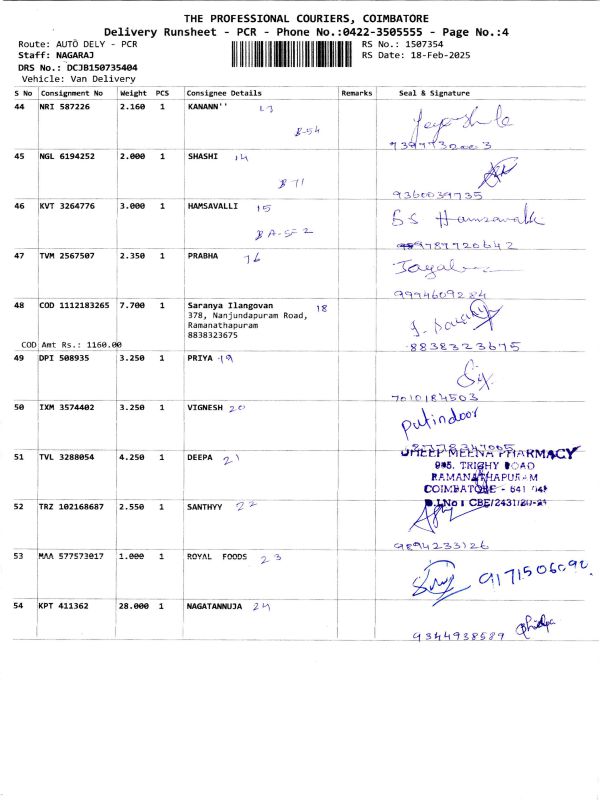 THE PROFESSIONAL COURIERS, COIMBATORE
Delivery Runsheet - PCR - Phone No.:0422-3505555 - Page No.:4
Route: AUTO DELY - PCR
RS No.: 1507354
Staff: NAGARAJ
RS Date: 18-Feb-2025
DRS No.: DCJB150735404
Vehicle: Van Delivery
S No Consignment No Weight PCS Consignee Details Remarks Seal & Signature
44 NRI 587226 2.160 1 KANANN'' 13
B-54
45 NGL 6194252 2.000 1 SHASHI 14
B 71
9360039735
46 KVT 3264776 3.000 1 HAMSAVALLI 15
BS Hamsavalli
9789720642
47 TVM 2567507 2.350 1 PRABHA 16
9994609284
48 COD 1112183265 7.700 1 Saranya Ilangovan 18
378, Nanjundapuram Road,
Ramanathapuram
8838323675
COD Amt Rs.: 1160.00
8838323675
49 DPI 508935 3.250 1 PRIYA 19
7010184503
50 IXM 3574402 3.250 1 VIGNESH 20
putindoor
51 TVL 3288054 4.250 1 DEEPA 21
MEENA PHARMACY
TRICHY ROAD
RAMANATHAPURAM
COIMBATORE - 641 045
52 TRZ 102168687 2.550 1 SANTHYY 22
9894233126
53 MAA 577573017 1.000 1 ROYAL FOODS 23
54 KPT 411362 28.000 1 NAGATANNUJA 24
9344938589